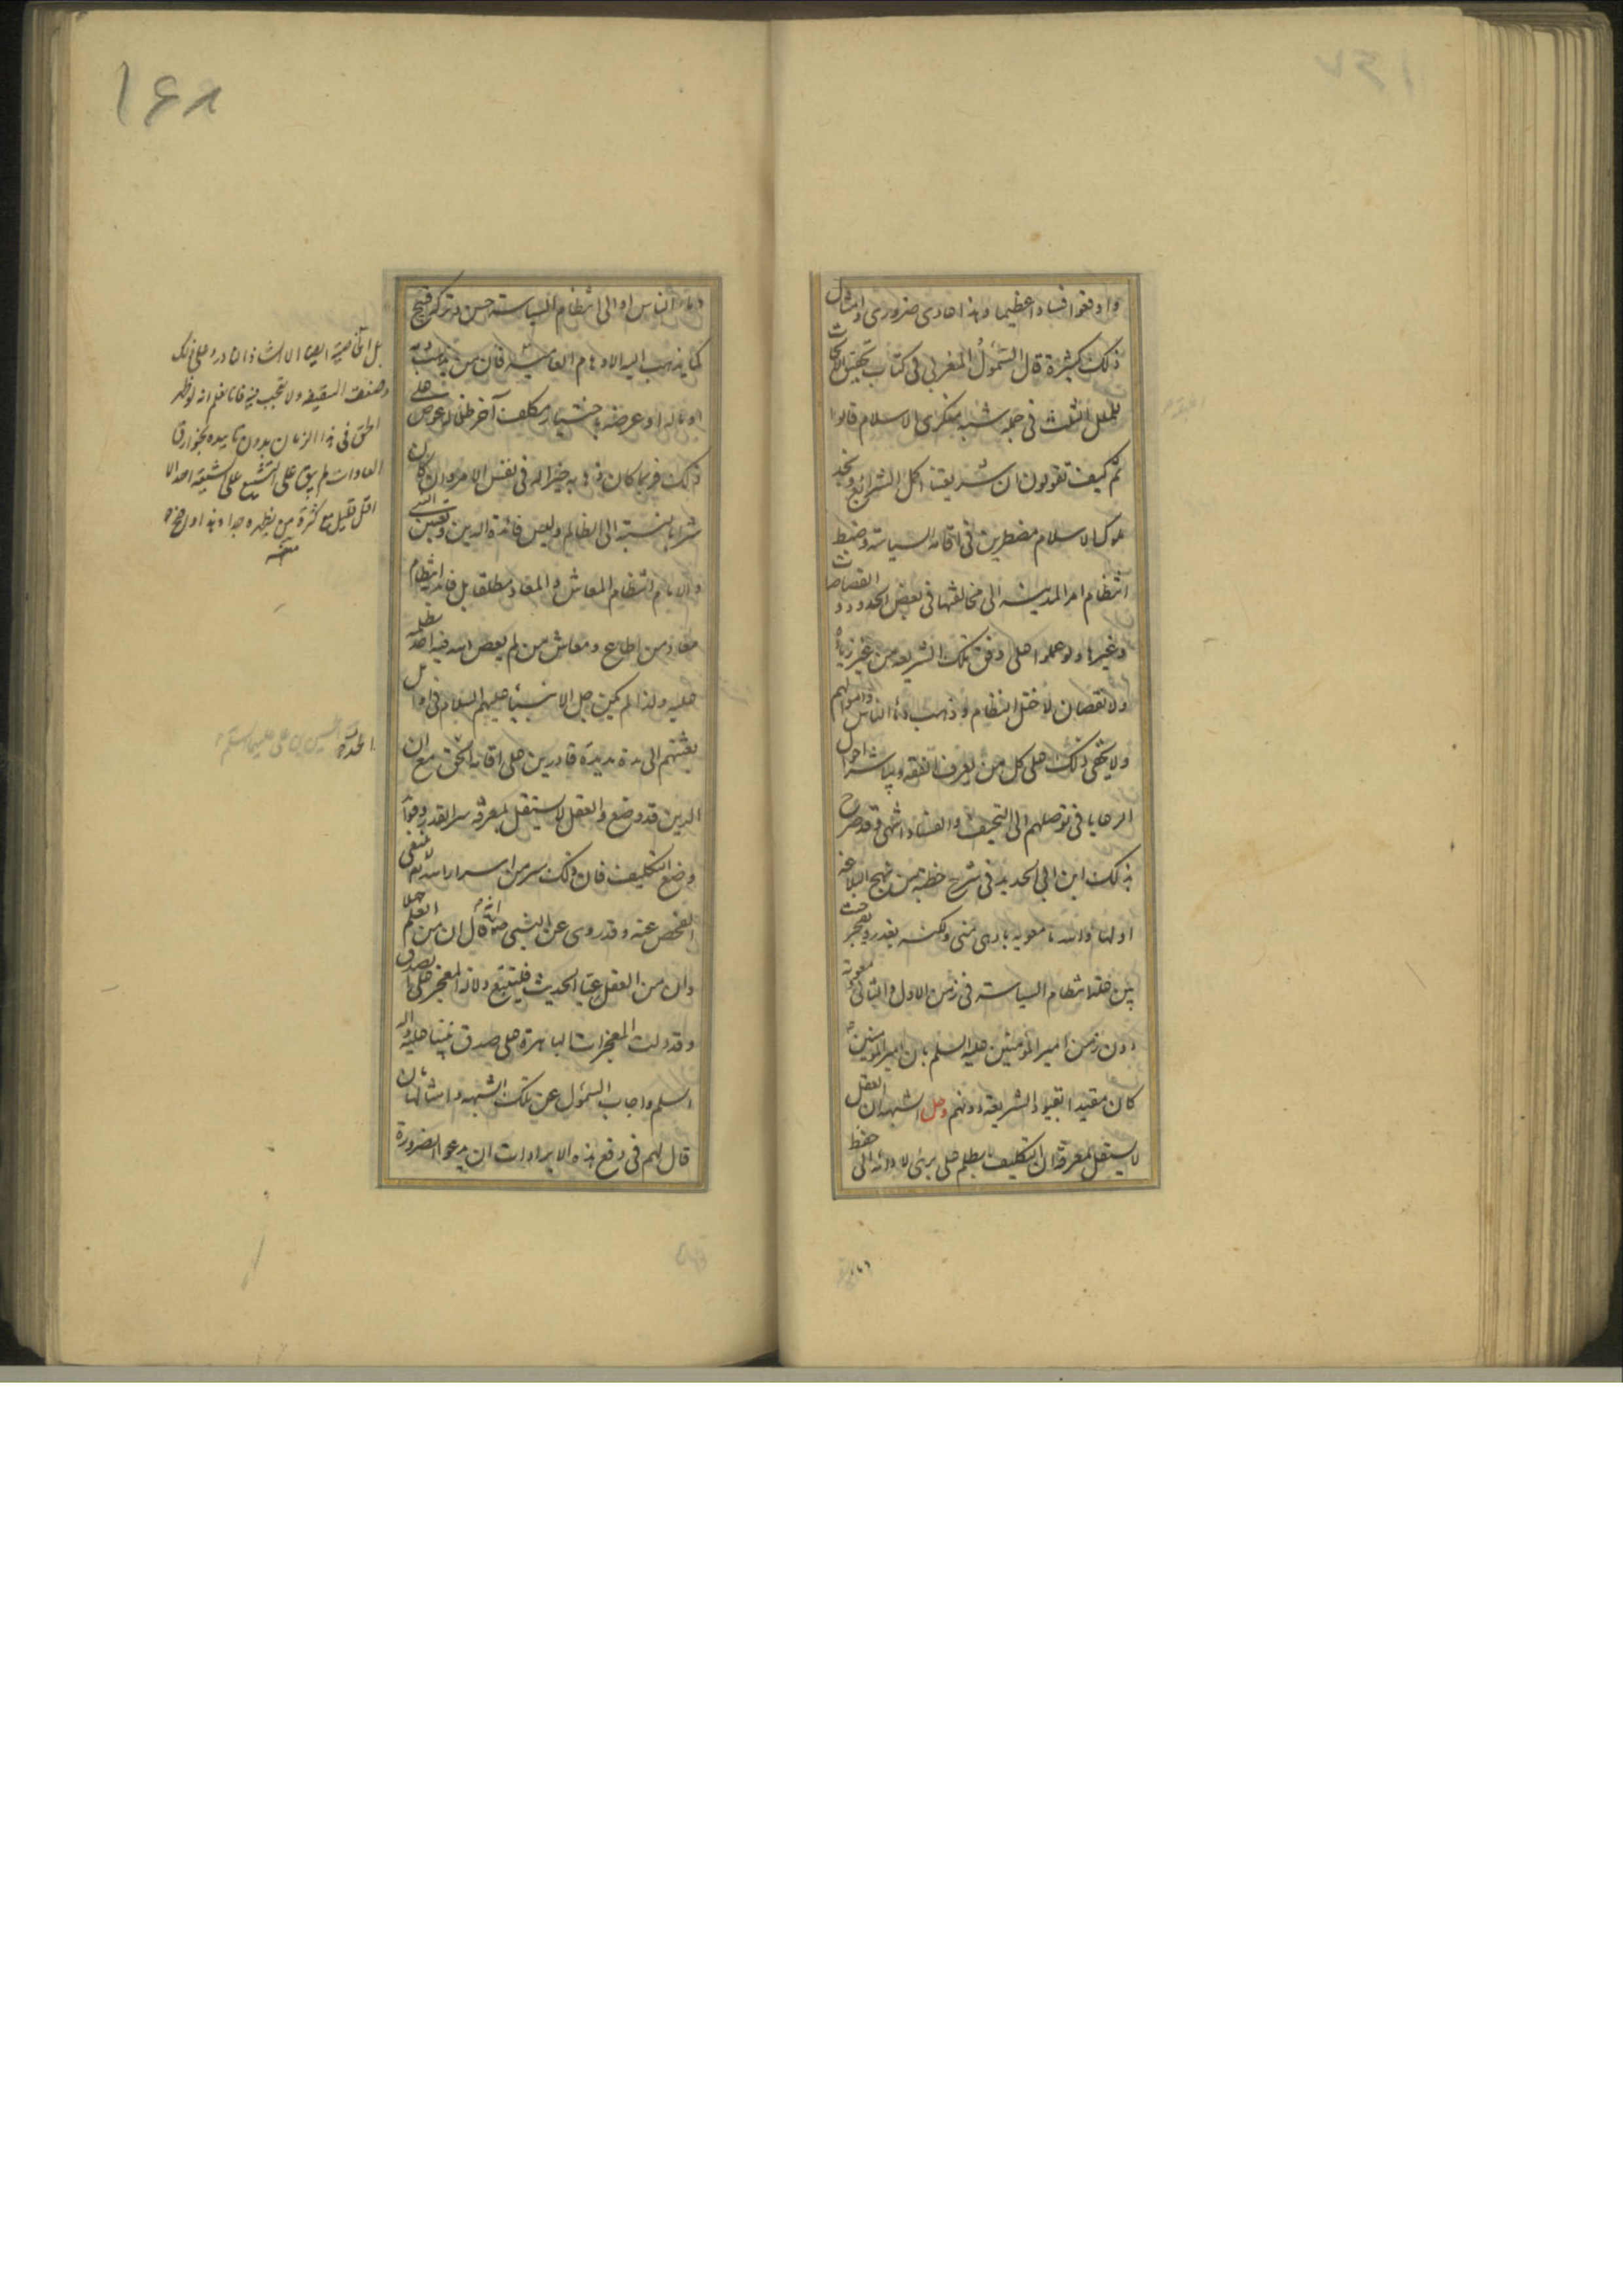 واوقعوا فسادا عظيما وهذا عادى ضرورى وامثال
ذلك كثيرة قال السَمَوأل المغربى فى كتاب تحقيق الابحاث
للملل الثلث فى جملة شبه منكرى الاسلام قالوا
ثم كيف تقولون ان شريعتنا اكمل الشرايع ونجد
ملوك الاسلام مضطرين فى اقامة السياسة وضبط
انتظام امر المدينة الى مخالفتها فى بعض الحدود و القصاصات
وغيرها ولو عملوا على وفق تلك الشريعة من غير زيادة
ولا نقصان لاختل النظام وذهب دماء الناس واموالهم
ولا يخفى ذلك على كل من يعرف الفقه ويباشر احوال
الرعايا فى توصلهم الى الحيف والفساد انتهى وقد صرح
بذلك ابن ابى الحديد فى شرح خطبة من نهج البلاغة
اولها والله ما معوية بادهى منى ولكنه يغدر ويفجر حيث
بين علة انتظام السياسة فى زمن الاول والثانى ومعوية
دون زمن امير المؤمنين عليه السلم بان امير المؤمنين
كان مقيدا بقيود الشريعة دونهم وحل الشبهة ان العقل
لا يستقل بمعرفة ان التكليف بظلم على برئ لا دائه الى حفظ
دماء
١٤٨
دماء الناس او الى انتظام السياسة حسن وتركه قبيح
كما يذهب اليه الاوهام العامية فان من يذهب دمه
او ماله او عرضه باختيار مكلف آخر ظلما له عوض على
ذلك فربما كان ذهابه خيرا له فى نفس الامر وان كان
شرا بالنسبة الى الظالم وليس فائدة الدين وتعيين النبى
والامام انتظام المعاش و المعاد مطلقا بل فائدته انتظام
معاد من اطاع ومعاش من لم يعص الله فيه احد بظلمه
عليه ولذا لم يكن جل الانبياء عليهم السلام فى اوائل
بعثتهم الى مدة مديدة قادرين على اقامة الحق مع ان
الدين قد وضع والعقل لا يستقل بمعرفة سر القدر وفوائد
وضع التكليف فان ذلك سر من اسرار الله تعالى لا ينبغى
الفحص عنه وقد روى عن النبى ص انه قال ان من العلم جهلا
وان من العقل عيّا الحديث فليتبع دلالة المعجز على الصدق
وقد دلت المعجزات الباهرة على صدق نبينا عليه وآله
السلم واجاب السموأل عن تلك الشبهة وامثالها بان
قال لهم فى دفع هذه الايرادات ان يدعوا الضرورة
العادات لم يبق على التشيع على الشيعة احد الا
الحسين بن على عليهما السلم